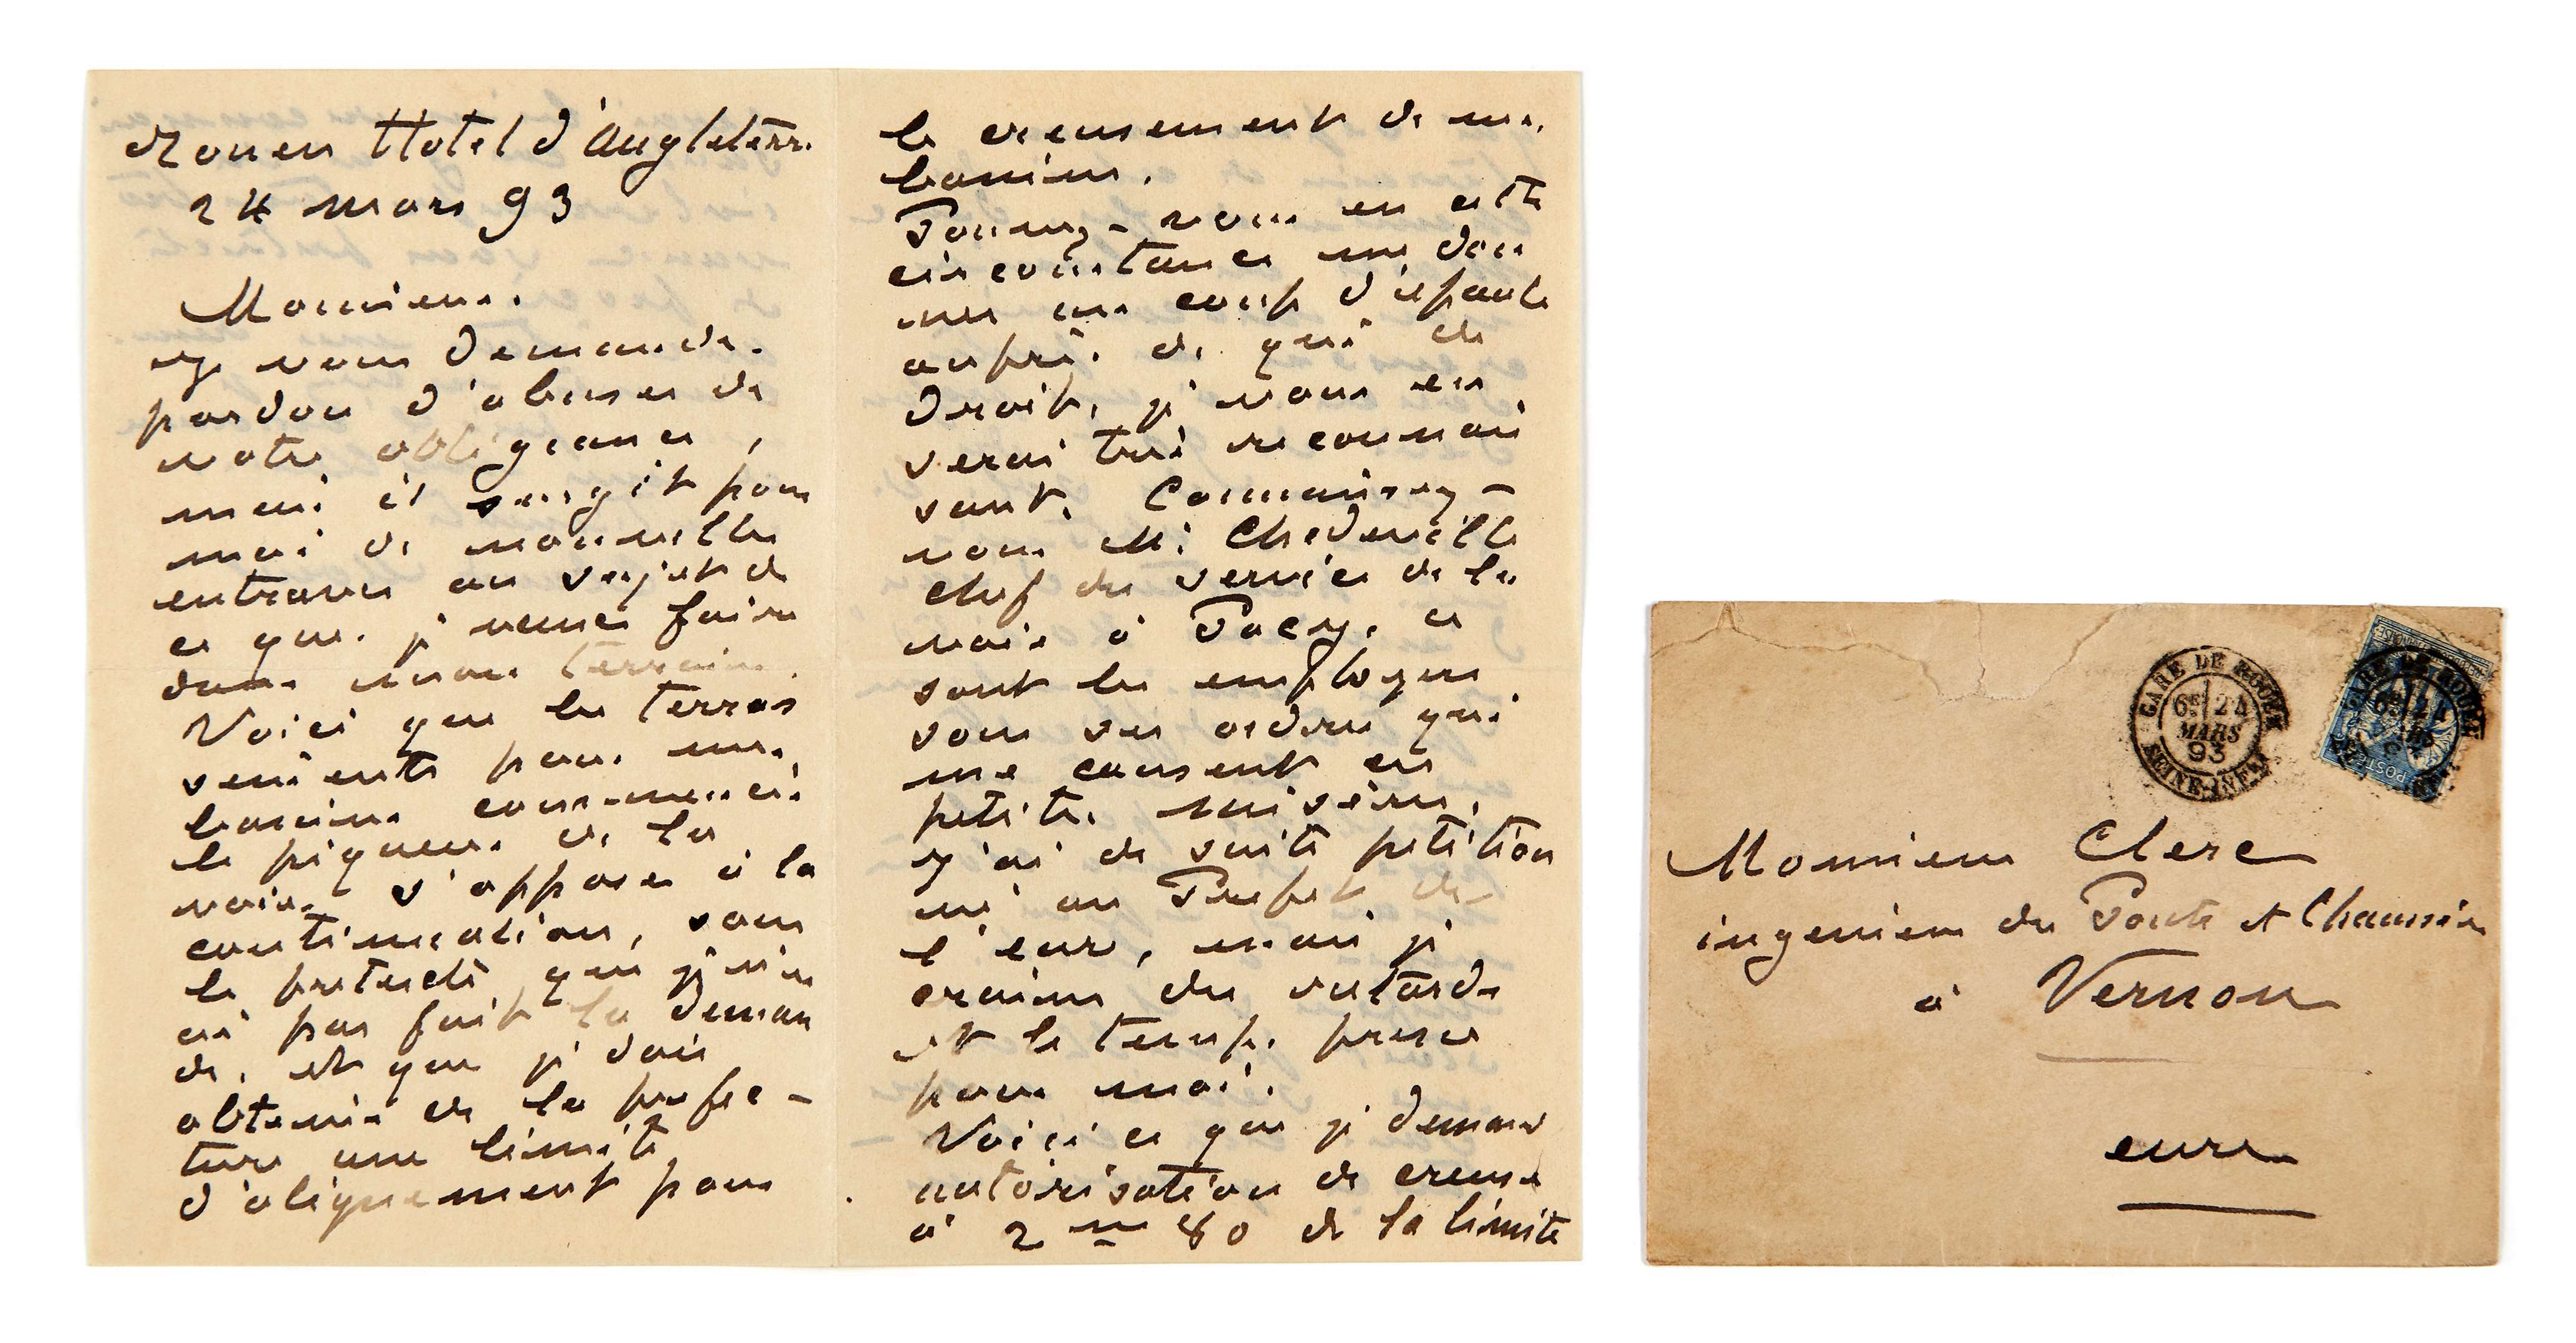 Rouen Hotel d'Angleterre
24 mars 93
Monsieur.
Je vous demande
pardon d'abuser de
votre obligeance,
mais il s'agit pour
moi de nouvelles
entraves au sujet de
ce que je veux faire
dans mon terrain.
Voici que les terras
siers pour mon
bassin commencé
le piqueur de la
voirie s'oppose à la
continuation, sous
le pretexte que je n'en
ai pas fait la deman
de, et que je dois
obtenir de la prefec-
ture une limite
d'alignement pour
le creusement de mon
bassin.
Pouvez-vous en cette
circonstance me don
ner un coup d'epaule
auprès de qui de
droit, je vous en
serai très reconnais
sant. Connaissez-
vous M. Chedeville
chef du service de la
voirie à Pacy, ce
sont les employés
sous ses ordres qui
me causent ces
petites misères,
j'ai de suite petition
né au Prefet de
l'eure, mais je
crains des retards
et le temps presse
pour moi.
Voici ce que je demand
autorisation de creuser
à 2 m 80 de la limite
GARE DE ROUEN
6E 24
MARS
93
SEINE-INFRE
POSTES
GARE DE ROUEN
Monsieur Clerc
ingenieur des Ponts et Chaussées
à Vernon
eure